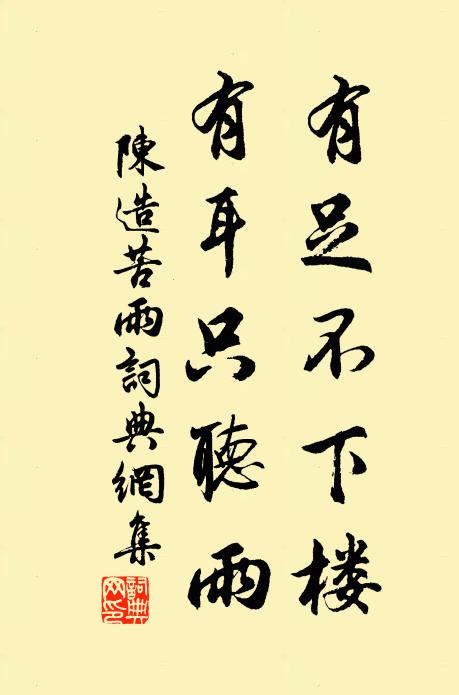 有足不下楼
有耳只聽雨
陳造苦雨詞典網集
詞典網印